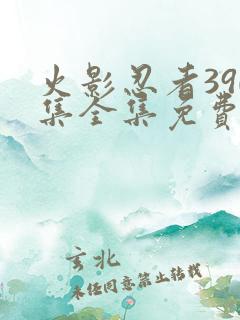 火影忍者39
集全集免费
玄北
未经同意禁止转载